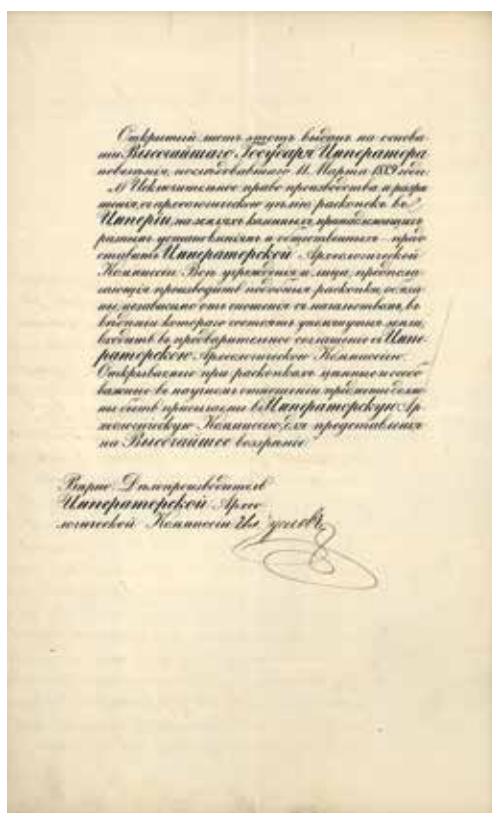 Открытый листъ этотъ выданъ на основа-
ніи Высочайшаго Государя Императора
повелѣнія, послѣдовавшаго 11 Марта 1889 года:
1) Исключительное право производства и разрѣ-
шенія, съ археологическою цѣлью раскопокъ въ
Имперіи, на земляхъ казенныхъ, принадлежащихъ
разнымъ установленіямъ и общественныхъ предо-
ставить Императорской Археологической
Коммиссіи. Всѣ учрежденія и лица, предпола-
гающія производить подобныя раскопки, обяза-
ны, независимо отъ сношенія съ начальствами, въ
вѣдѣніи которыхъ состоятъ упомянутыя земли,
входить въ предварительное соглашеніе съ Импе-
раторскою Археологическою Коммиссіею.
Открываемые при раскопкахъ цѣнные и особо
важные въ научномъ отношеніи предметы долж-
ны быть присылаемы въ Императорскую Ар-
хеологическую Коммиссію, для представленія
на Высочайшее воззрѣніе.
Вѣрно: Дѣлопроизводитель
Императорской Архео-
логической Коммиссіи